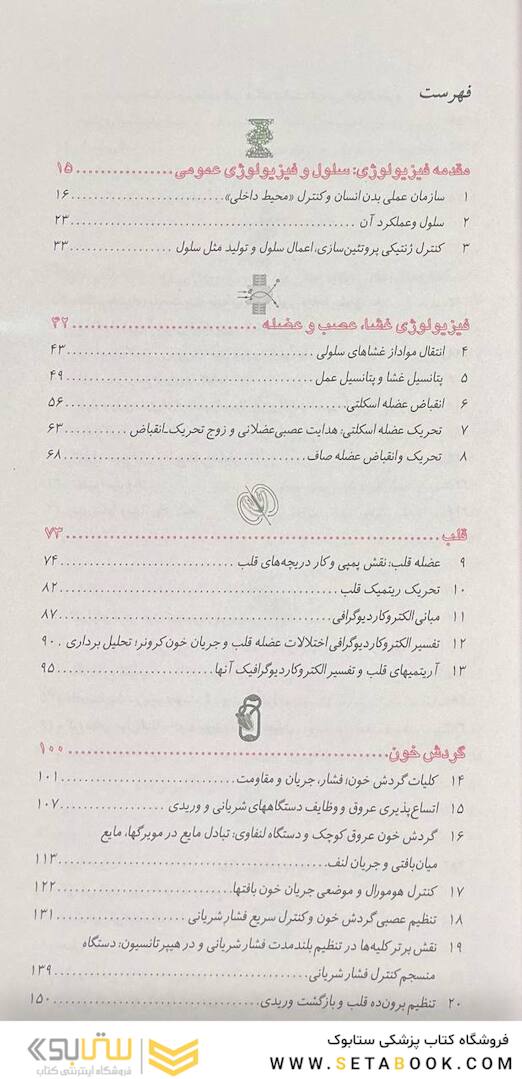 فهرست
مقدمه فیزیولوژی: سلول و فیزیولوژی عمومی ................ ۱۵
۱ سازمان عملی بدن انسان و کنترل «محیط داخلی» ................ ۱۶
۲ سلول و عملکرد آن ................ ۲۳
۳ کنترل ژنتیکی پروتئین‌سازی، اعمال سلول و تولید مثل سلول ................ ۳۳
فیزیولوژی غشا، عصب و عضله ................ ۴۲
۴ انتقال مواد از غشاهای سلولی ................ ۴۳
۵ پتانسیل غشا و پتانسیل عمل ................ ۴۹
۶ انقباض عضله اسکلتی ................ ۵۶
۷ تحریک عضله اسکلتی: هدایت عصبی‌عضلانی و زوج تحریک-انقباض ................ ۶۳
۸ تحریک و انقباض عضله صاف ................ ۶۸
قلب ................ ۷۳
۹ عضله قلب: نقش پمپی و کار دریچه‌های قلب ................ ۷۴
۱۰ تحریک ریتمیک قلب ................ ۸۲
۱۱ مبانی الکتروکاردیوگرافی ................ ۸۷
۱۲ تفسیر الکتروکاردیوگرافی اختلالات عضله قلب و جریان خون کرونر: تحلیل برداری . ۹۰
۱۳ آریتمیهای قلب و تفسیر الکتروکاردیوگرافیک آنها ................ ۹۵
گردش خون ................ ۱۰۰
۱۴ کلیات گردش خون: فشار، جریان و مقاومت ................ ۱۰۱
۱۵ اتساع‌پذیری عروق و وظایف دستگاههای شریانی و وریدی ................ ۱۰۷
۱۶ گردش خون عروق کوچک و دستگاه لنفاوی: تبادل مایع در مویرگها، مایع
میان‌بافتی و جریان لنف ................ ۱۱۳
۱۷ کنترل هومورال و موضعی جریان خون بافتها ................ ۱۲۲
۱۸ تنظیم عصبی گردش خون و کنترل سریع فشار شریانی ................ ۱۳۱
۱۹ نقش برتر کلیه‌ها در تنظیم بلندمدت فشار شریانی و در هیپرتانسیون: دستگاه
منسجم کنترل فشار شریانی ................ ۱۳۹
۲۰ تنظیم برون‌ده قلب و بازگشت وریدی ................ ۱۵۰
فروشگاه کتاب پزشکی ستابوک
WWW.SETABOOK.COM
ستابوک
فروشگاه اینترنتی کتاب